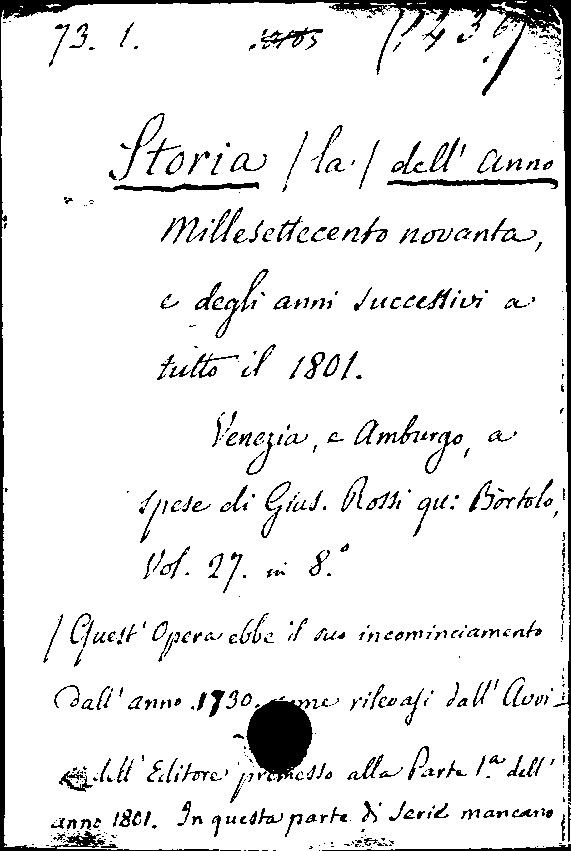 73. 1. (P. 439)
Storia / la / dell' anno
Millesettecento novanta,
e degli anni successivi a
tutto il 1801.
Venezia, e Amburgo, a
spese di Gius. Rossi qu: Bortolo,
Vol. 27. in 8.º
/ Quest' Opera ebbe il suo incominciamento
dall' anno 1730. come rilevasi dall' Avvi-
dell' Editore premesso alla Parte 1.ª dell'
anno 1801. In questa parte di Serie mancano